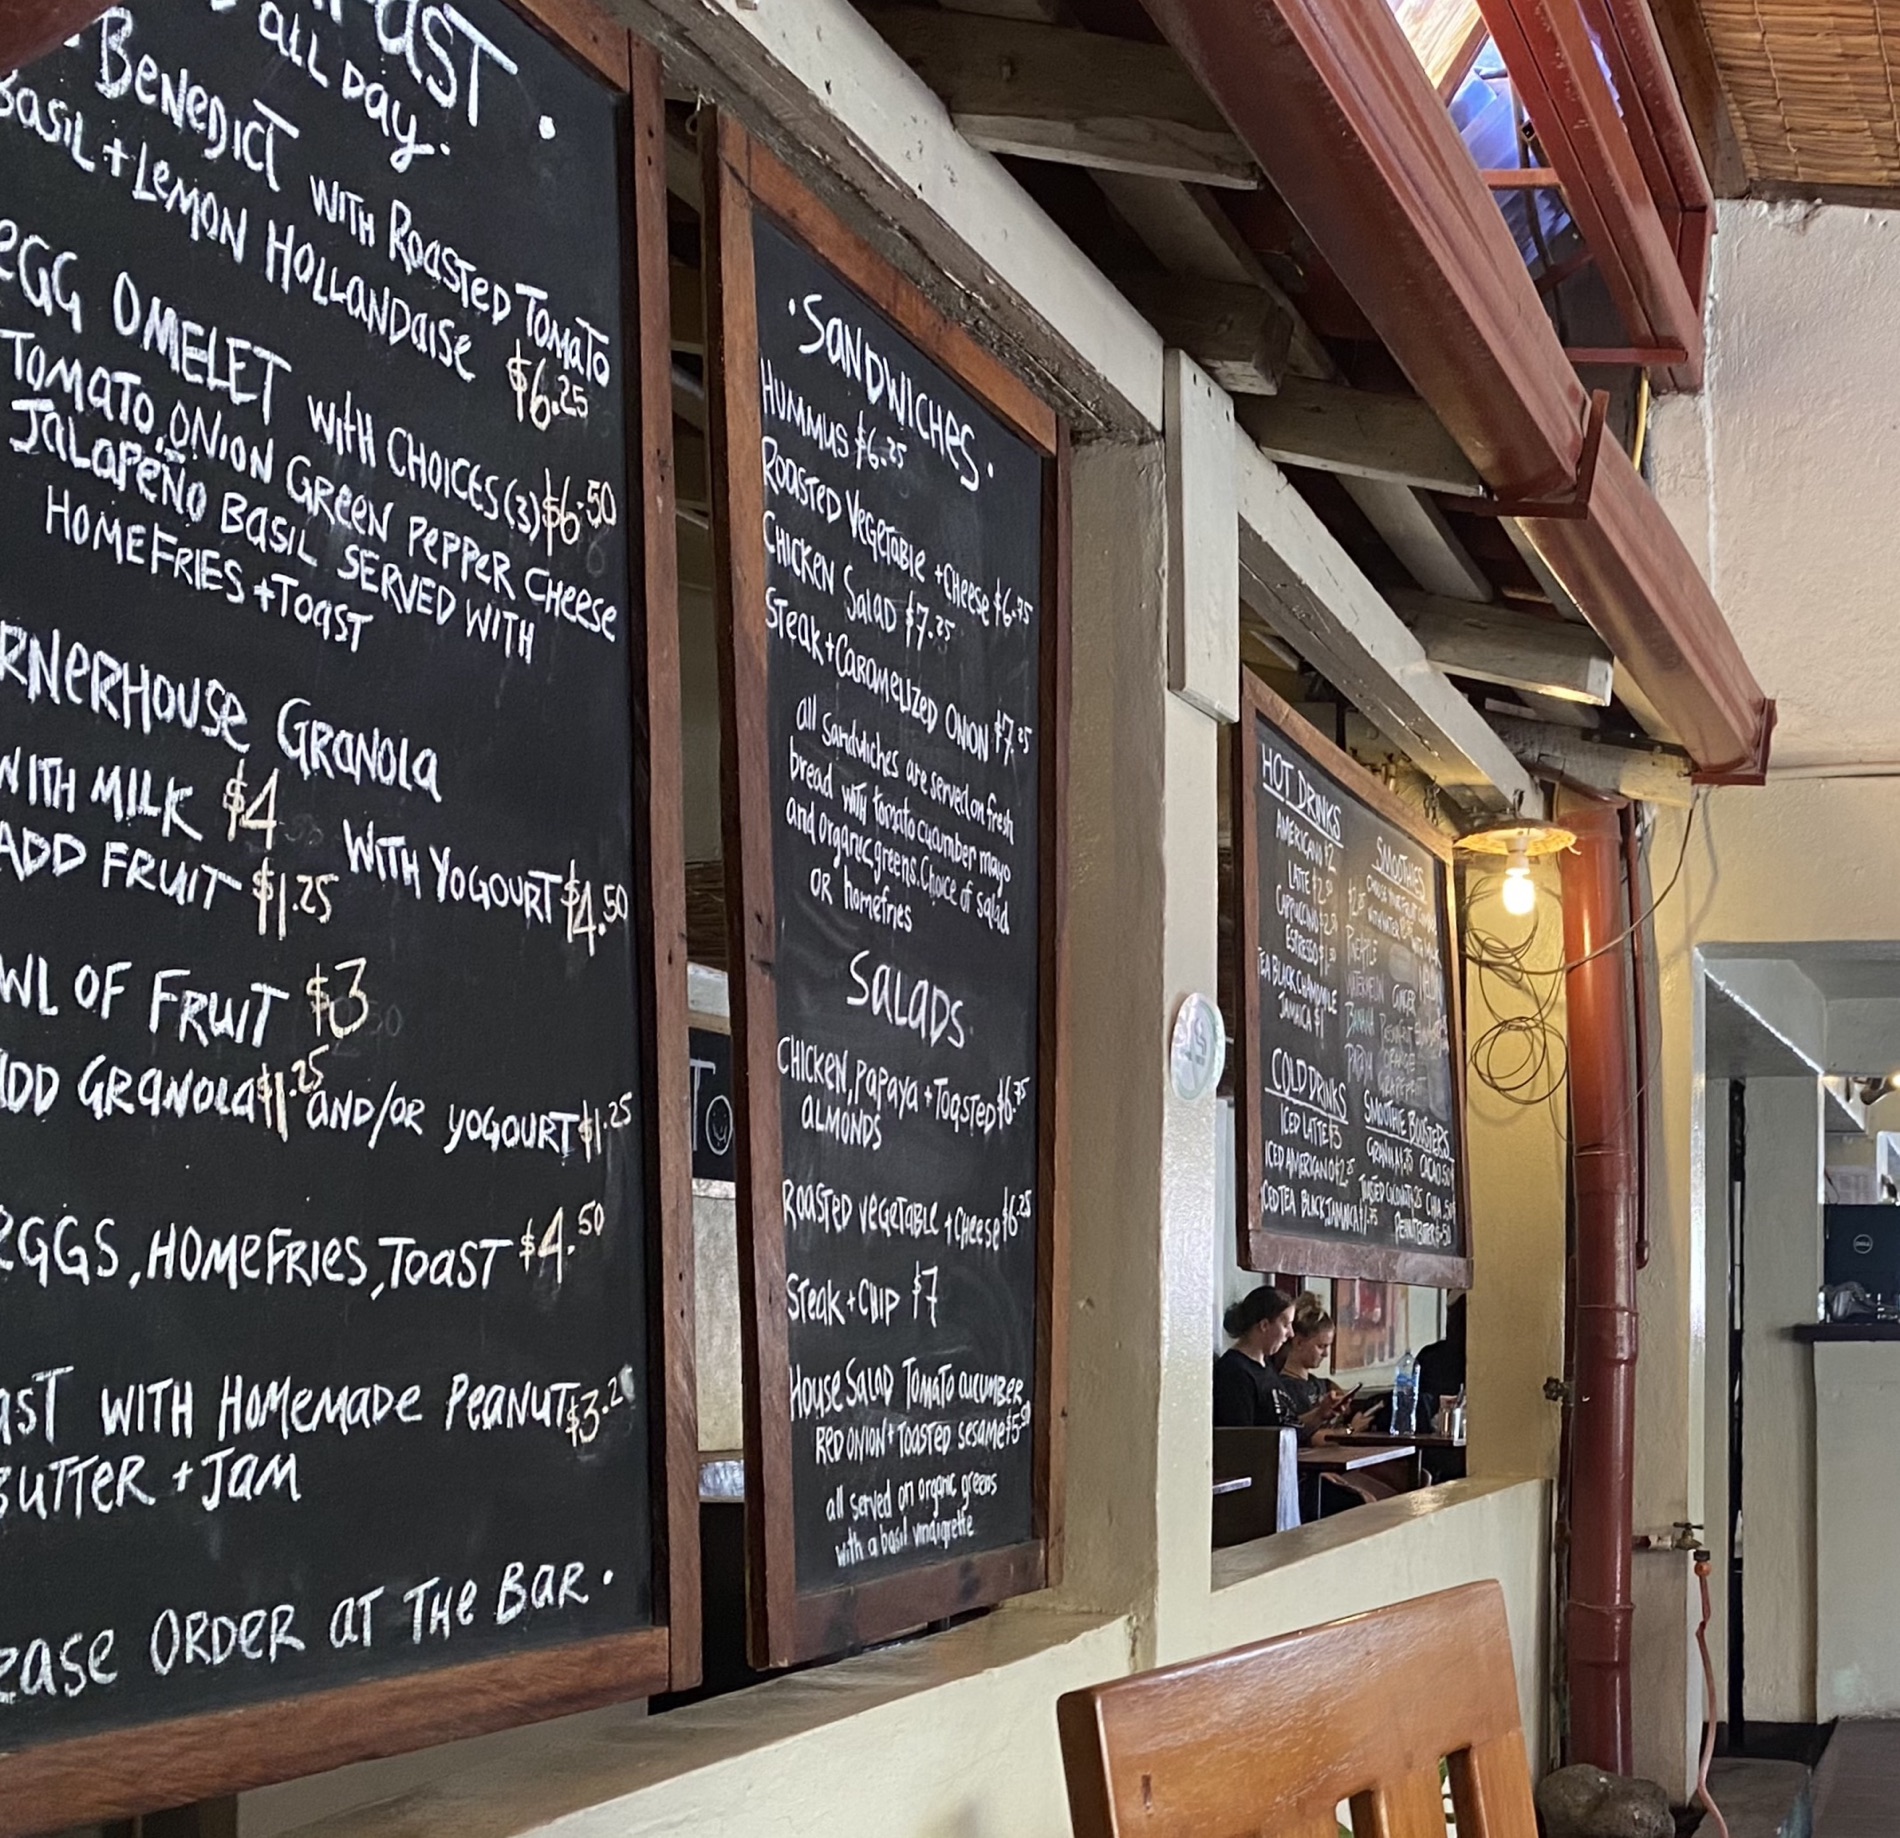 ALL DAY.
BENEDICT WITH ROASTED TOMATO
BASIL + LEMON HOLLANDAISE $6.25
EGG OMELET WITH CHOICES (3) $6.50
TOMATO, ONION GREEN PEPPER CHEESE
JALAPEÑO BASIL SERVED WITH
HOMEFRIES + TOAST
RNERHOUSE GRANOLA
WITH MILK $4 WITH YOGOURT $4.50
ADD FRUIT $1.25
WL OF FRUIT $3
ADD GRANOLA $1.25 AND/OR YOGOURT $1.25
EGGS, HOMEFRIES, TOAST $4.50
AST WITH HOMEMADE PEANUT
BUTTER + JAM
EASE ORDER AT THE BAR.
· SANDWICHES ·
HUMMUS $6.25
ROASTED VEGETABLE + CHEESE
CHICKEN SALAD $7.25
STEAK + CARAMELIZED ONION $7.25
all sandwiches are served on fresh
bread with tomato cucumber mayo
and organic greens. Choice of salad
or homefries
SALADS
CHICKEN, PAPAYA + TOASTED
ALMONDS
ROASTED VEGETABLE + CHEESE $6.25
STEAK + CHIP $7
HOUSE SALAD TOMATO CUCUMBER
RED ONION + TOASTED SESAME $5.50
all served on organic greens
with a basil vinaigrette
HOT DRINKS
AMERICANO $2
LATTE $2.50
CAPPUCCINO $2.50
ESPRESSO
TEA BLACK CHAMOMILE
JAMAICA $1
COLD DRINKS
ICED LATTE $3
ICED AMERICANO
ICED TEA BLACK JAMAICA
SMOOTHIES
PINEAPPLE
WATERMELON GINGER
BANANA
PAPAYA
SMOOTHIE BOOSTERS
GRANOLA CACAO
TOASTED COCONUT CHIA
PEANUT BUTTER